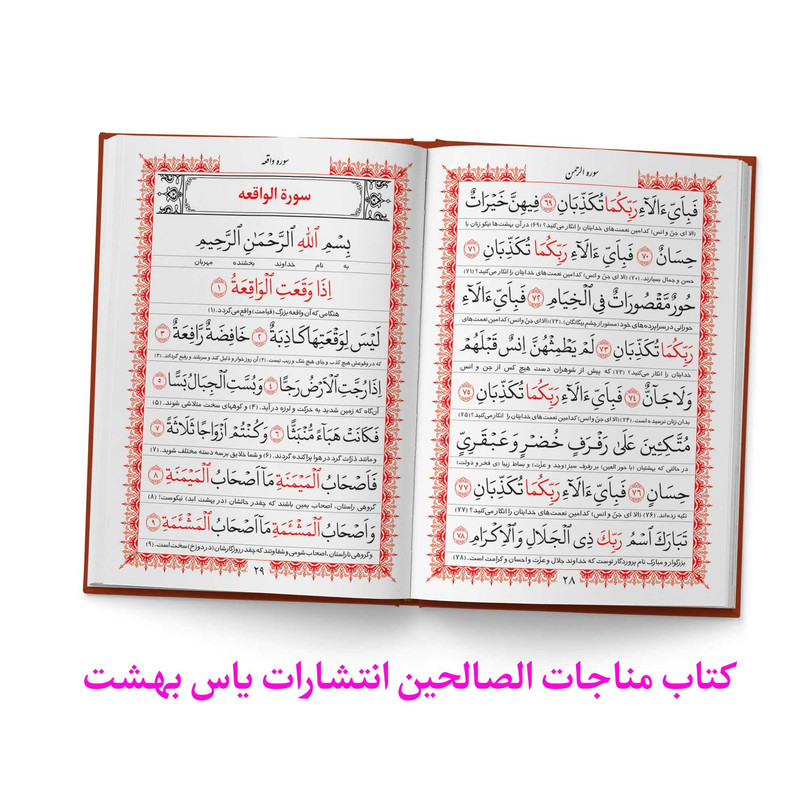 سوره الرحمن
فَبِأَيِّ ءَالَآءِ رَبِّكُمَا تُكَذِّبَانِ ﴿٦٩﴾ فِيهِنَّ خَيْرَاتٌ
(الا ای جن و انس) کدامین نعمت‌های خدایتان را انکار می‌کنید؟ (۶۹) در آن بهشت‌ها نیکو زنان با
حِسَانٌ ﴿٧٠﴾ فَبِأَيِّ ءَالَآءِ رَبِّكُمَا تُكَذِّبَانِ ﴿٧١﴾
حسن و جمال بسیارند. (۷۰) (الا ای جن و انس) کدامین نعمت‌های خدایتان را انکار می‌کنید؟ (۷۱)
حُورٌ مَّقْصُورَاتٌ فِي الْخِيَامِ ﴿٧٢﴾ فَبِأَيِّ ءَالَآءِ
حورانی در سراپرده‌های خود (مستور از چشم بیگانگان). (۷۲) (الا ای جن و انس) کدامین نعمت‌های
رَبِّكُمَا تُكَذِّبَانِ ﴿٧٣﴾ لَمْ يَطْمِثْهُنَّ إِنسٌ قَبْلَهُمْ
خدایتان را انکار می‌کنید؟ (۷۳) که پیش از شوهران دست هیچ کس از جن و انس
وَلَا جَآنٌّ ﴿٧٤﴾ فَبِأَيِّ ءَالَآءِ رَبِّكُمَا تُكَذِّبَانِ ﴿٧٥﴾
بدان زنان نرسیده است. (۷۴) (الا ای جن و انس) کدامین نعمت‌های خدایتان را انکار می‌کنید؟ (۷۵)
مُتَّكِئِينَ عَلَىٰ رَفْرَفٍ خُضْرٍ وَعَبْقَرِيٍّ
در حالتی که بهشتیان (با حور العین) بر رفرف سبز (وجد و عزّت) و بساط زیبا (ی فخر و دولت)
حِسَانٍ ﴿٧٦﴾ فَبِأَيِّ ءَالَآءِ رَبِّكُمَا تُكَذِّبَانِ ﴿٧٧﴾
تکیه زده‌اند. (۷۶) (الا ای جن و انس) کدامین نعمت‌های خدایتان را انکار می‌کنید؟ (۷۷)
تَبَارَكَ اسْمُ رَبِّكَ ذِي الْجَلَالِ وَالْإِكْرَامِ ﴿٧٨﴾
بزرگوار و مبارک نام پروردگار توست که خداوند جلال و عزّت و احسان و کرامت است. (۷۸)
۲۸
سوره واقعه
سورة الواقعه
بِسْمِ اللَّهِ الرَّحْمَٰنِ الرَّحِيمِ
به نام خداوند بخشنده مهربان
إِذَا وَقَعَتِ الْوَاقِعَةُ ﴿١﴾
هنگامی که آن واقعه بزرگ (قیامت) واقع می‌گردد. (۱)
لَيْسَ لِوَقْعَتِهَا كَاذِبَةٌ ﴿٢﴾ خَافِضَةٌ رَّافِعَةٌ ﴿٣﴾
که در وقوعش هیچ کذب و جای هیچ شک و ریب نیست. (۲) آن روز خوار و ذلیل کند و سربلند و رفیع گرداند. (۳)
إِذَا رُجَّتِ الْأَرْضُ رَجًّا ﴿٤﴾ وَبُسَّتِ الْجِبَالُ بَسًّا ﴿٥﴾
آن‌گاه که زمین شدید به حرکت و لرزه در آید. (۴) و کوههای سخت متلاشی شوند. (۵)
فَكَانَتْ هَبَآءً مُّنبَثًّا ﴿٦﴾ وَكُنتُمْ أَزْوَاجًا ثَلَاثَةً ﴿٧﴾
و مانند ذرّات گرد در هوا پراکنده گردند. (۶) و شما خلایق بر سه دسته مختلف شوید. (۷)
فَأَصْحَابُ الْمَيْمَنَةِ مَآ أَصْحَابُ الْمَيْمَنَةِ ﴿٨﴾
گروهی راستان، اصحاب یمین باشند که چقدر حالشان (در بهشت ابد) نیکوست! (۸)
وَأَصْحَابُ الْمَشْئَمَةِ مَآ أَصْحَابُ الْمَشْئَمَةِ ﴿٩﴾
و گروهی ناراستان، اصحاب شومی و شقاوتند که چقدر روزگارشان (در دوزخ) سخت است. (۹)
۲۹
کتاب مناجات الصالحین انتشارات یاس بهشت